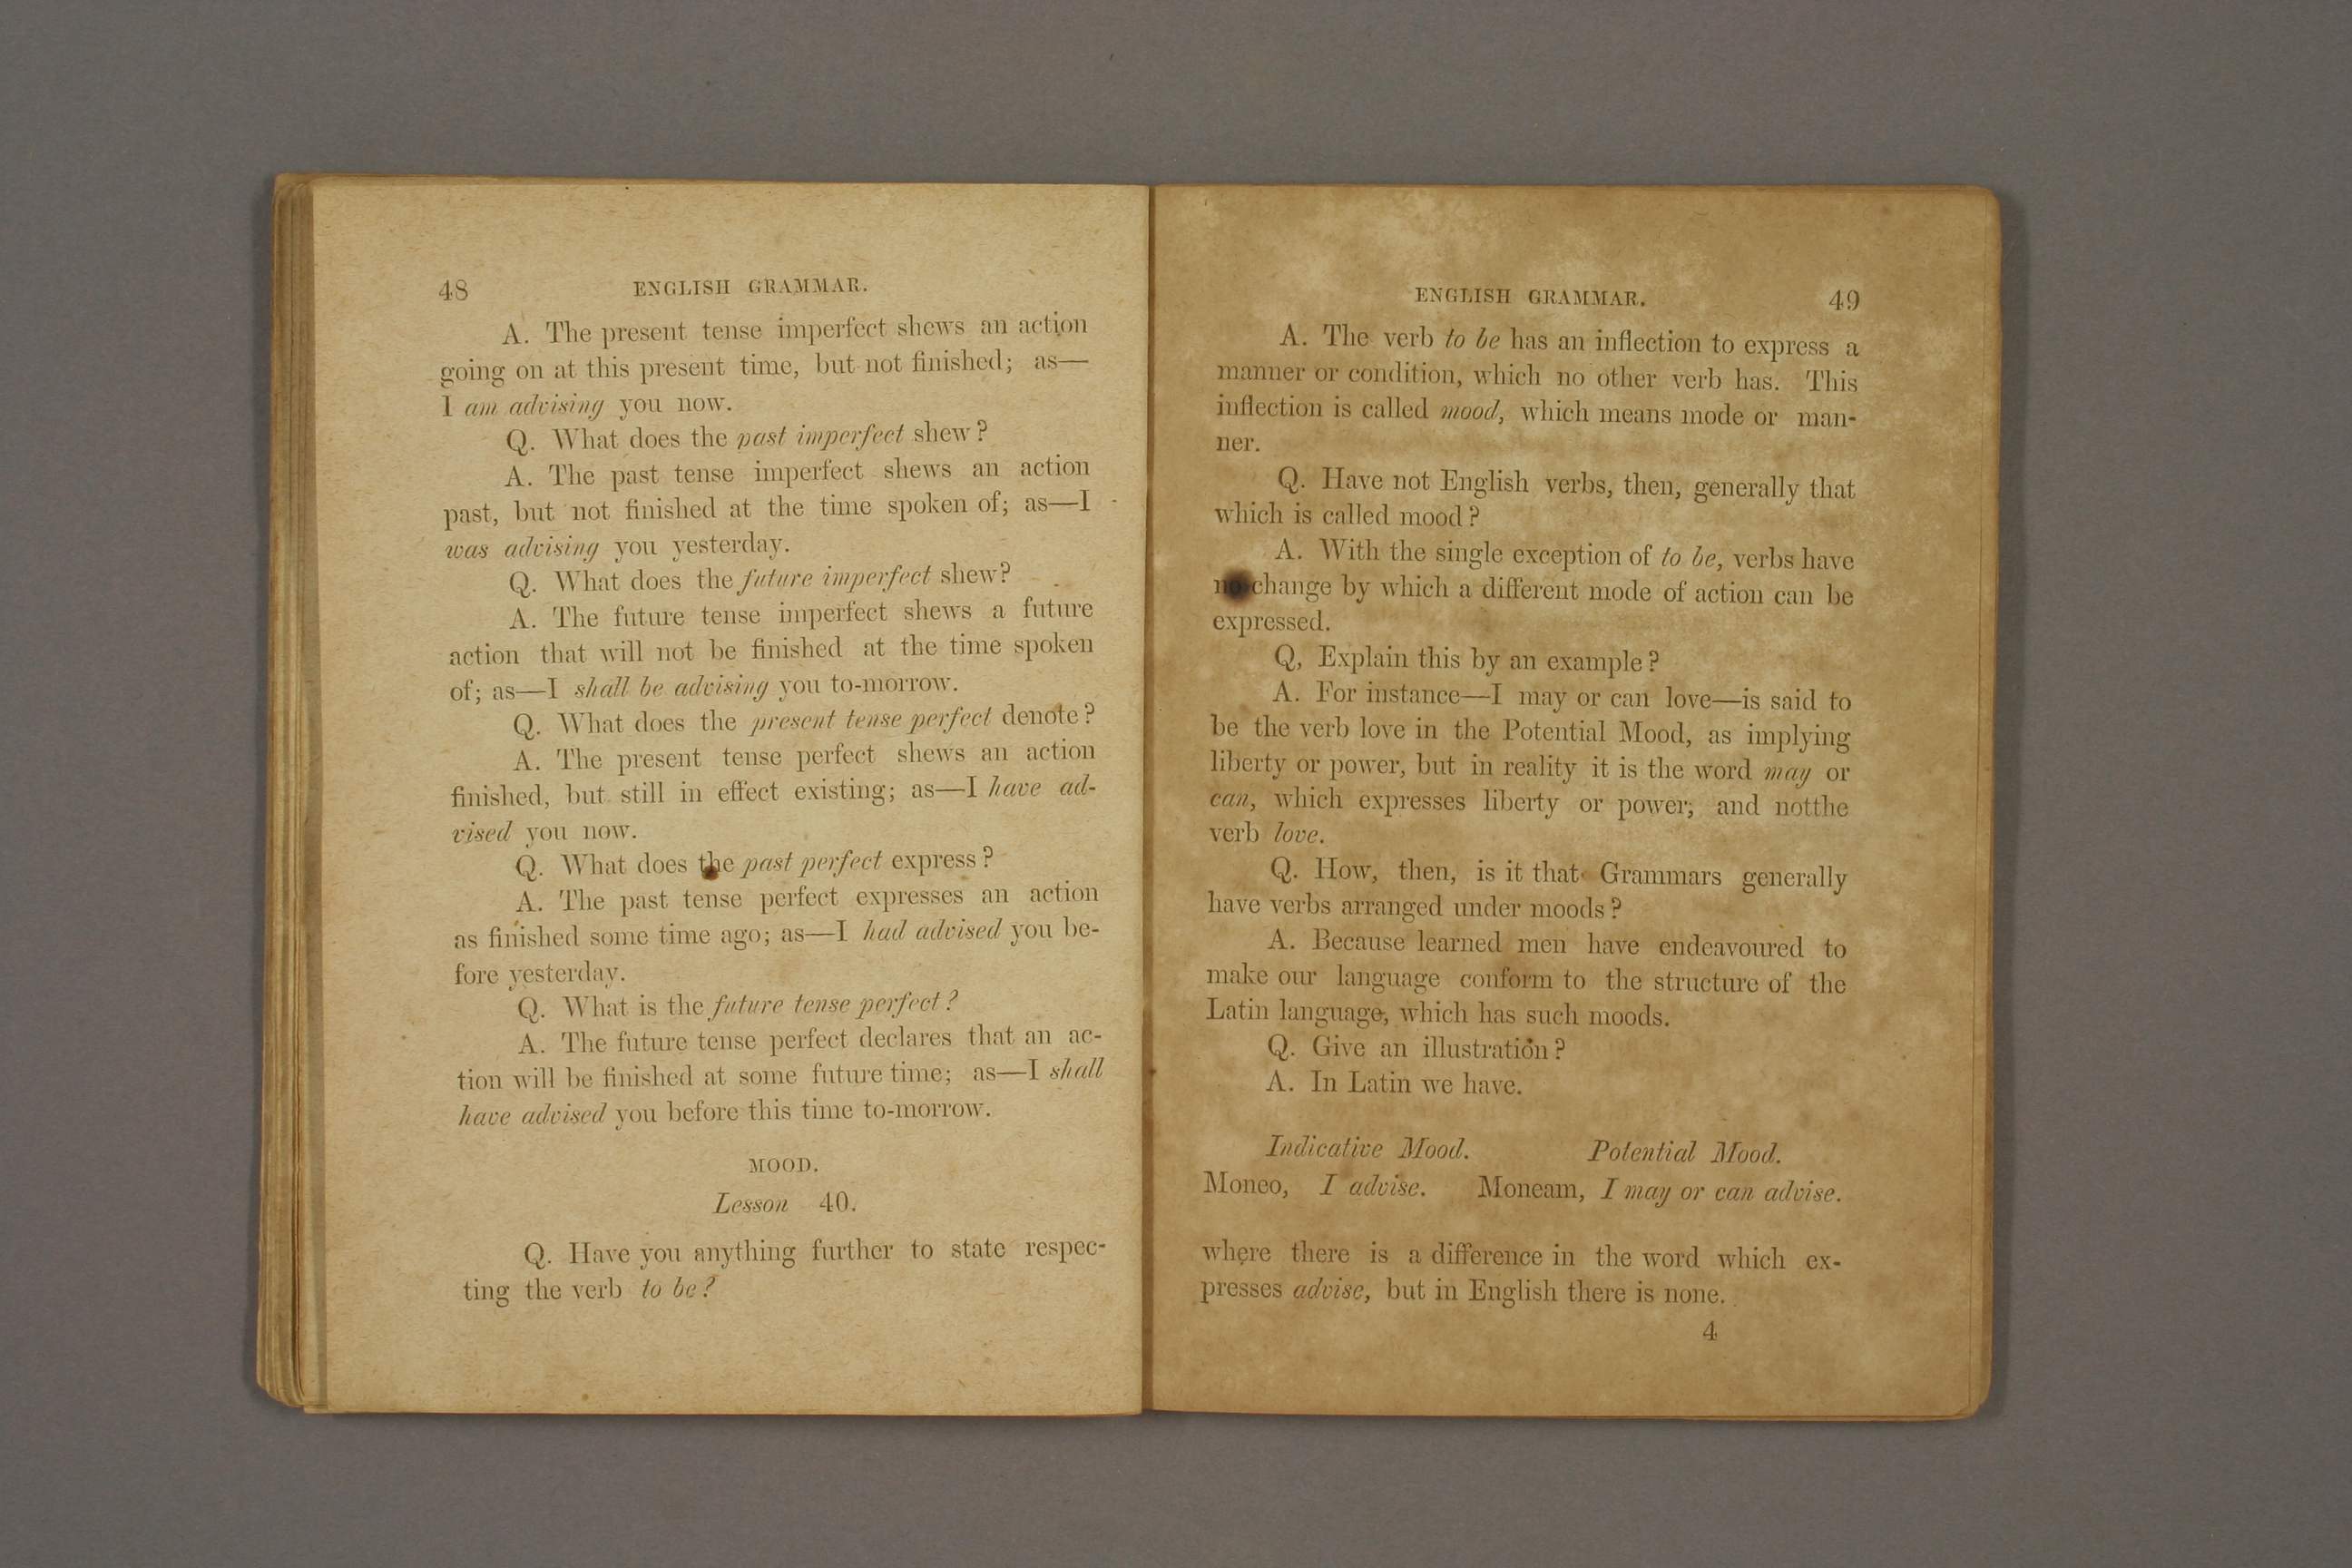 48 ENGLISH GRAMMAR.
A. The present tense imperfect shews an action
going on at this present time, but not finished; as—
I am advising you now.
Q. What does the past imperfect shew?
A. The past tense imperfect shews an action
past, but not finished at the time spoken of; as—I
was advising you yesterday.
Q. What does the future imperfect shew?
A. The future tense imperfect shews a future
action that will not be finished at the time spoken
of; as—I shall be advising you to-morrow.
Q. What does the present tense perfect denote?
A. The present tense perfect shews an action
finished, but still in effect existing; as—I have ad-
vised you now.
Q. What does the past perfect express?
A. The past tense perfect expresses an action
as finished some time ago; as—I had advised you be-
fore yesterday.
Q. What is the future tense perfect?
A. The future tense perfect declares that an ac-
tion will be finished at some future time; as—I shall
have advised you before this time to-morrow.
MOOD.
Lesson 40.
Q. Have you anything further to state respec-
ting the verb to be?
ENGLISH GRAMMAR. 49
A. The verb to be has an inflection to express a
manner or condition, which no other verb has. This
inflection is called mood, which means mode or man-
ner.
Q. Have not English verbs, then, generally that
which is called mood?
A. With the single exception of to be, verbs have
no change by which a different mode of action can be
expressed.
Q, Explain this by an example?
A. For instance—I may or can love—is said to
be the verb love in the Potential Mood, as implying
liberty or power, but in reality it is the word may or
can, which expresses liberty or power; and notthe
verb love.
Q. How, then, is it that Grammars generally
have verbs arranged under moods?
A. Because learned men have endeavoured to
make our language conform to the structure of the
Latin language, which has such moods.
Q. Give an illustration?
A. In Latin we have.
Indicative Mood. Potential Mood.
Moneo, I advise. Moneam, I may or can advise.
where there is a difference in the word which ex-
presses advise, but in English there is none.
4